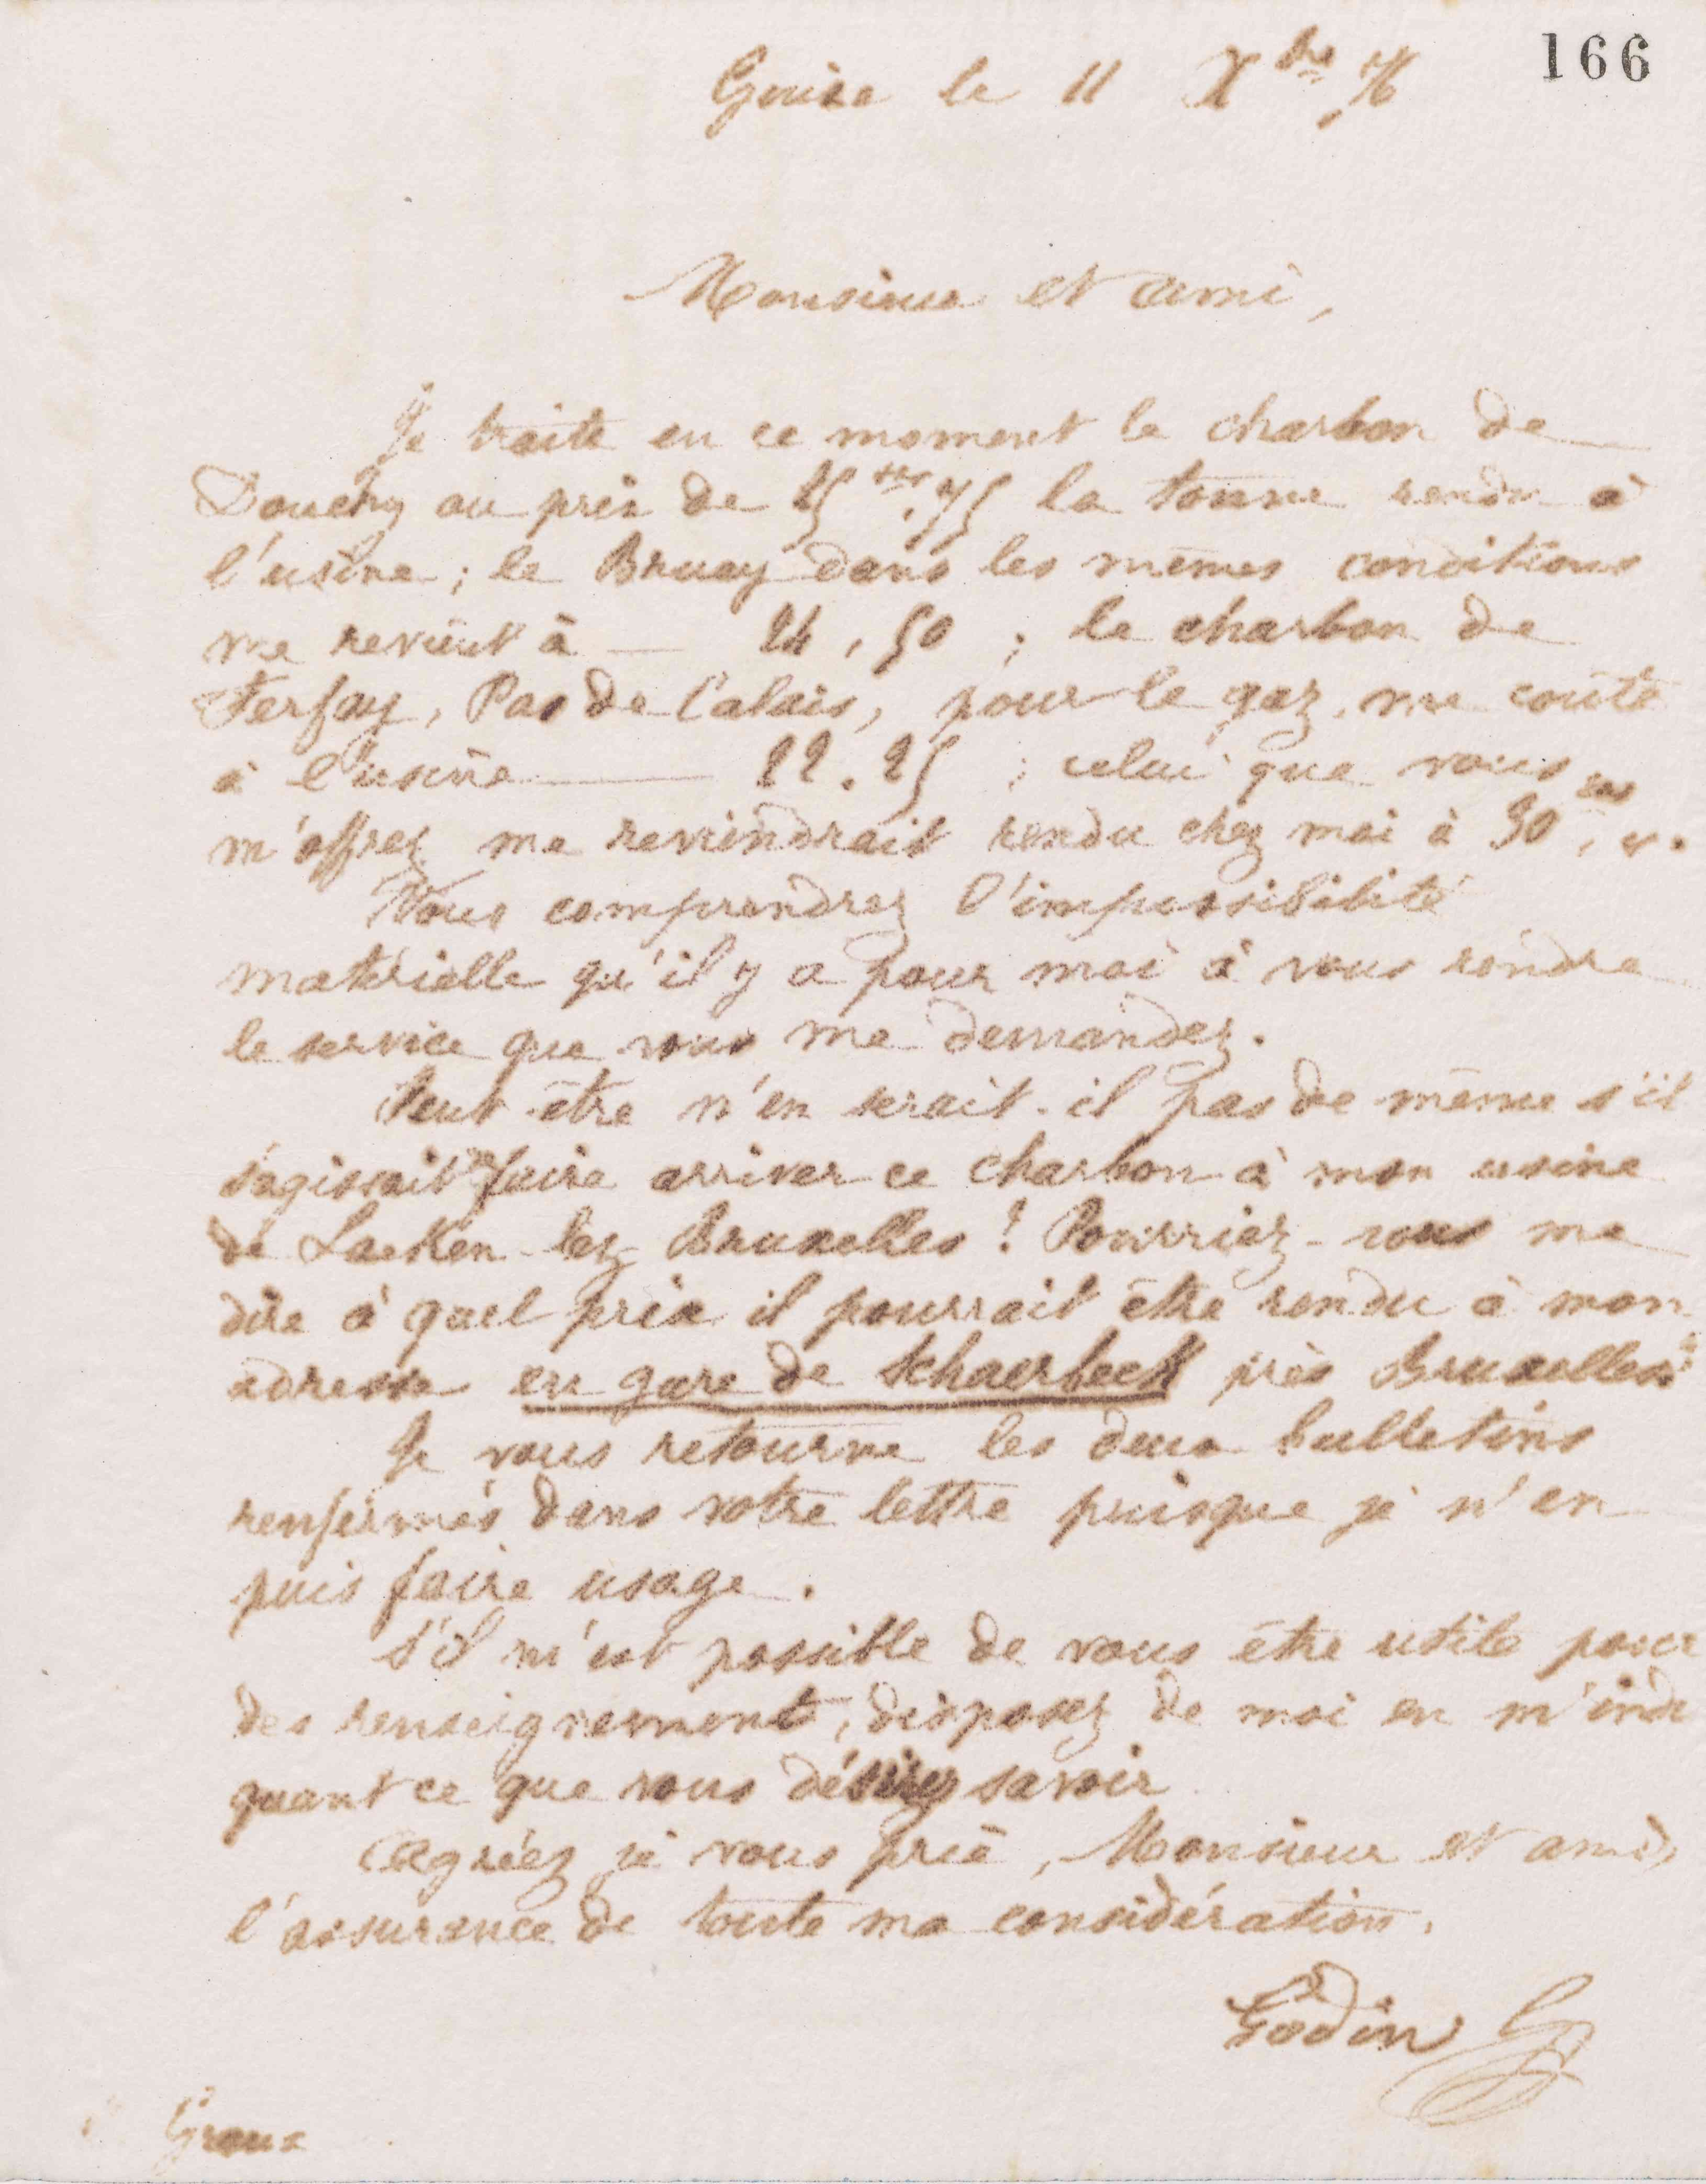 166
Guise le 11 Xbre 76
Monsieur et ami,
Je traite en ce moment le charbon de
Douchy au prix de 25 frs, 75 la tonne rendu à
l'usine ; le Bruay dans les mêmes conditions
me revient à — 24, 50 ; le charbon de
Ferfay, Pas de Calais, pour le gaz, me coûte
à l'usine — 22. 25 ; celui que vous
m'offrez me reviendrait rendu chez moi à 30 frs, ".
Vous comprendrez l'impossibilité
matérielle qu'il y a pour moi à vous rendre
le service que vous me demandez.
Peut-être n'en serait-il pas de même s'il
s'agissait de faire arriver ce charbon à mon usine
de Laeken-lez-Bruxelles ! Pourriez-vous me
dire à quel prix il pourrait être rendu à mon
adresse en gare de Schaerbeek près Bruxelles ?
Je vous retourne les deux bulletins
renfermés dans votre lettre puisque je n'en
puis faire usage.
S'il m'est possible de vous être utile pour
des renseignements, disposez de moi en m'indi
quant ce que vous désirez savoir
Agréez je vous prie, Monsieur et ami,
l'assurance de toute ma considération.
Godin
Groux